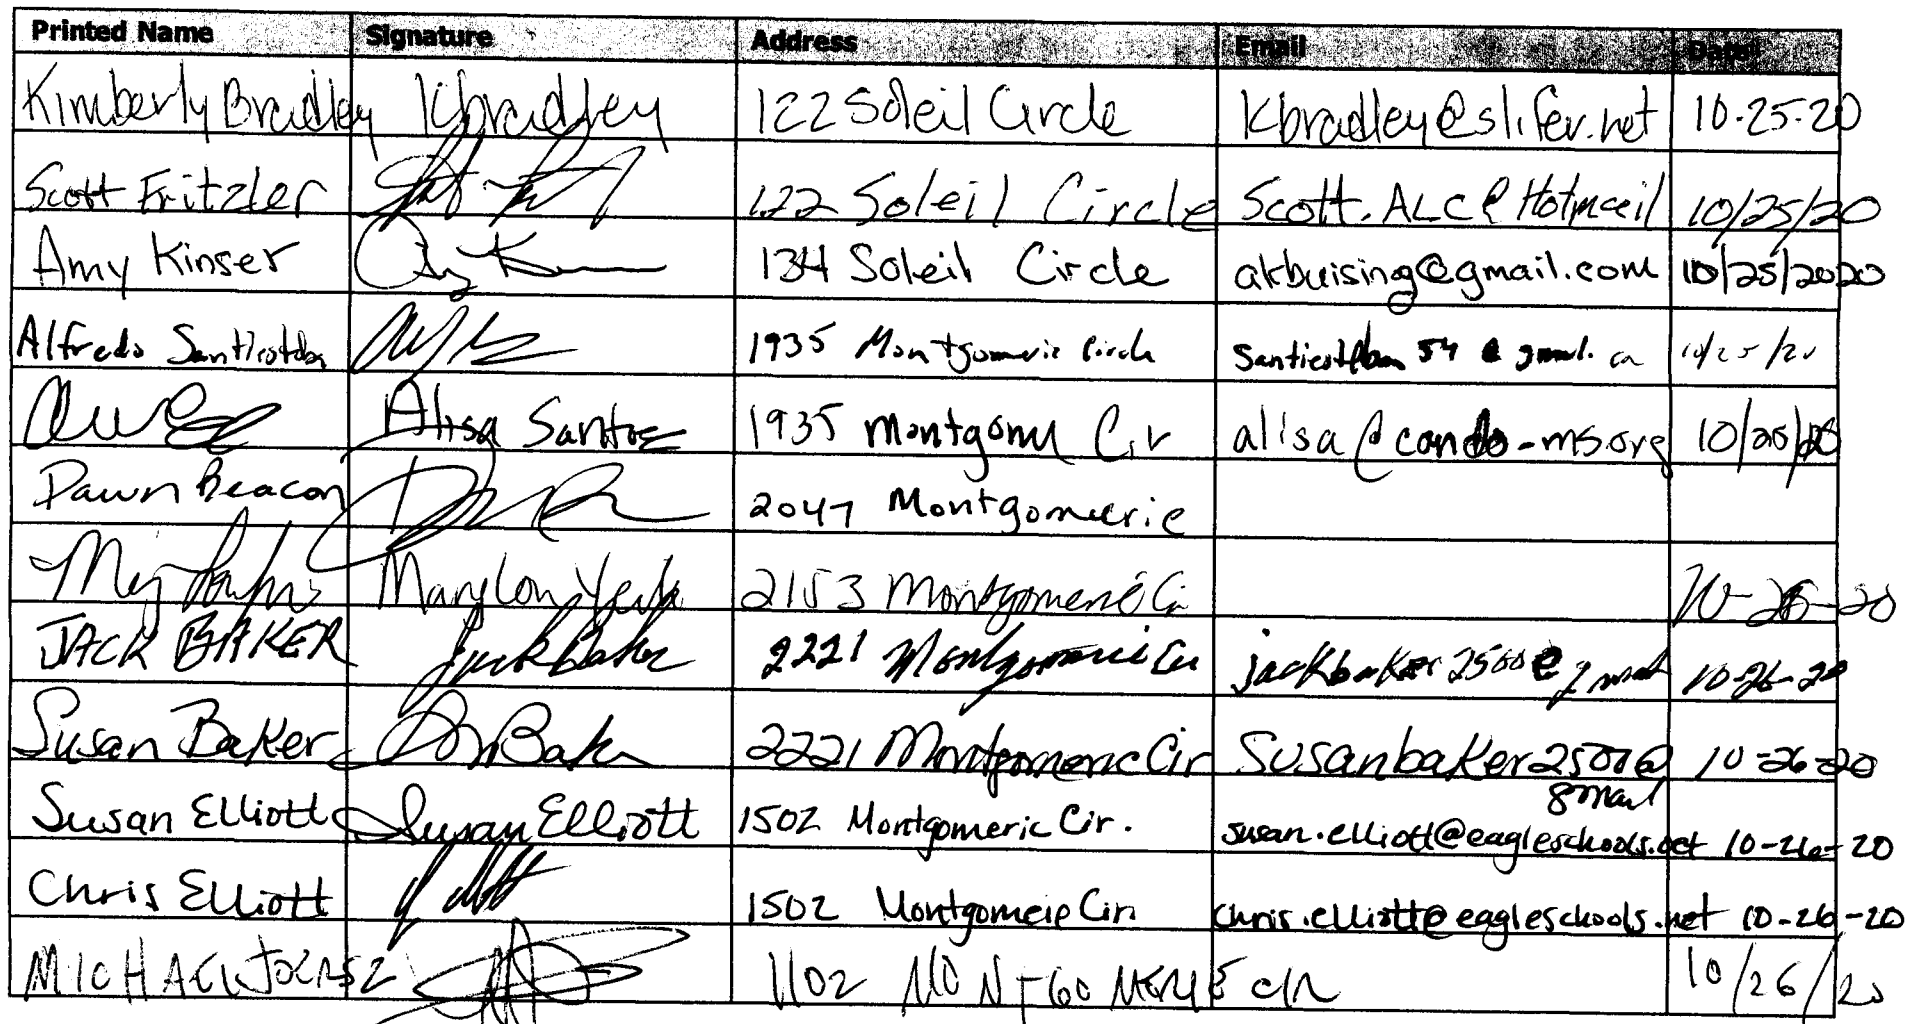 Printed Name Signature Address Email Date
Kimberly Bradley Kbradley 122 Soleil Circle Kbradley@slifer.net 10-25-20
Scott Fritzler 122 Soleil Circle Scott.ALC@Hotmail 10/25/20
Amy Kinser 134 Soleil Circle akbuising@gmail.com 10/25/2020
Alfredo 1935 Montgomerie Circle 10/25/20
Alisa 1935 Montgomy Cir 10/25/20
Dawn Beacon 2047 Montgomerie
Marylon 2153 Montgomerie Cir 10-26-20
JACK BAKER Jack Baker 2221 Montgomerie Cir jackbaker2500@gmail 10-26-20
Susan Baker 2221 Montgomerie Cir Susanbaker2500@ 10-26-20
gmail
Susan Elliott Susan Elliott 1502 Montgomerie Cir. susan.elliott@eagleschools.net 10-26-20
Chris Elliott 1502 Montgomerie Cir. chris.elliott@eagleschools.net 10-26-20
MICHAEL 1102 10/26/20